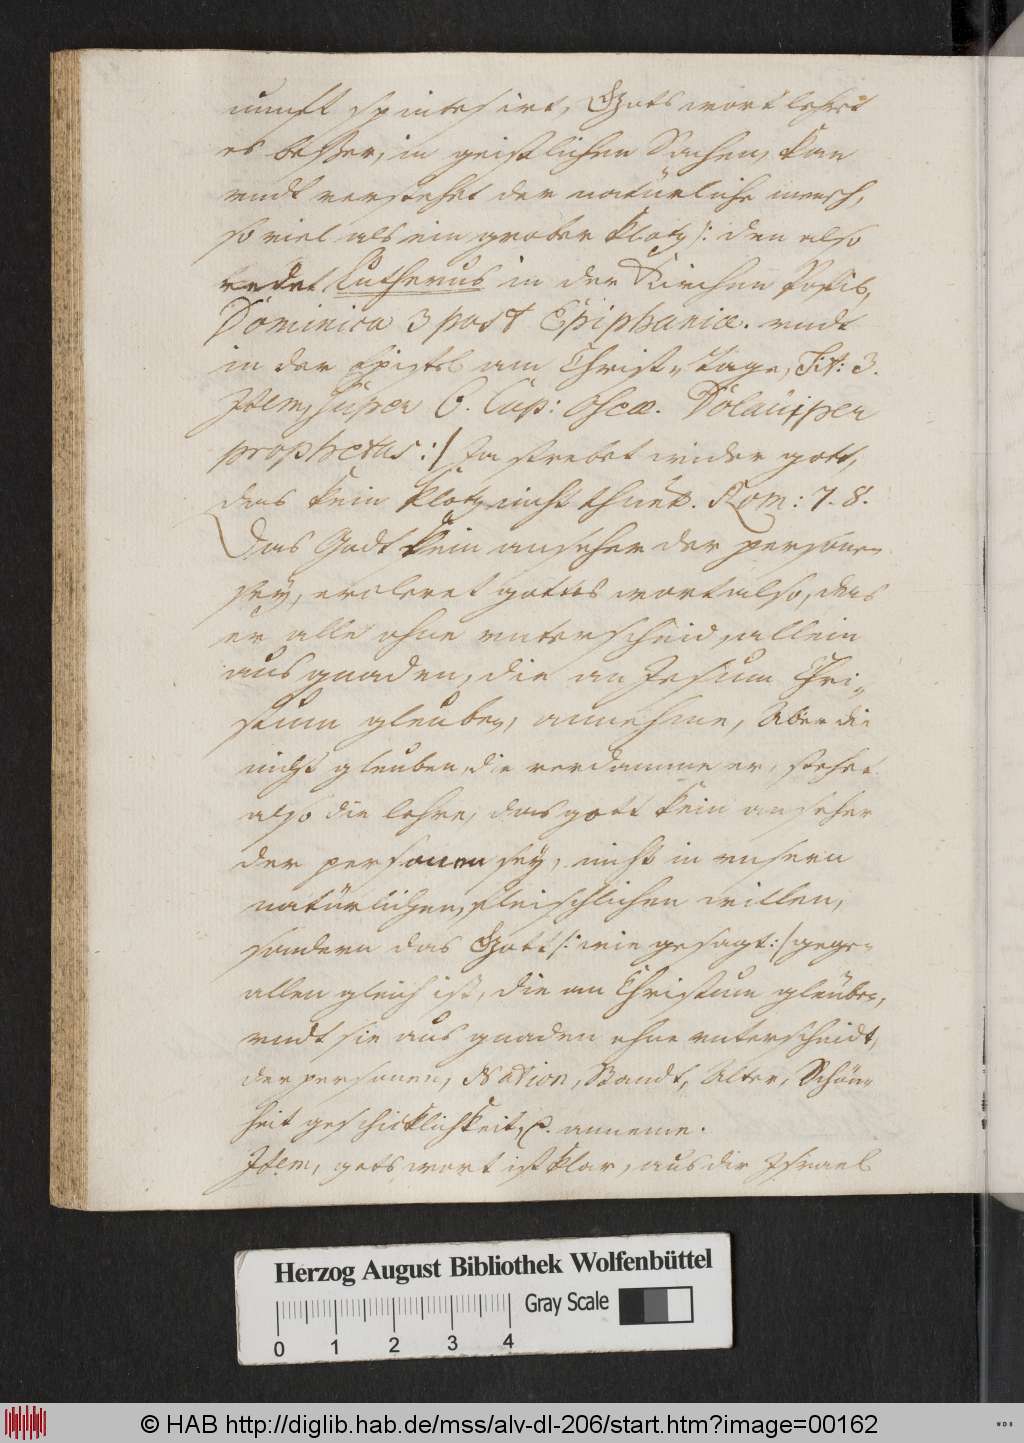 nunft spintesirt, Gots wort lehret
es beßer, in geistlichen Sachen, kan
undt verstehet der natürliche mensch,
so viel als ein grober Klotz /: den also
redet Lutherus in der Kirchen Postil,
Dominica 3 post Epiphaniæ. undt
in der Epistel am Christ„ Tage, Tit: 3.
Item, super 6. Cap: Oseæ.
prophetas :/ Ja strebet wider gott,
das kein Klotz nicht thuet. Rom: 7. 8.
Das Godt kein anseher der personen
sey, ercleret gottes wort also, das
er alle ohne unterscheid, allein
aus gnaden, die an Jesum Chri„
stum gleuben, annehme, Aber die
nicht gleuben, die verdamme er, stehet
also die lehre, das gott kein anseher
der personen sey, nicht in unsern
natürlichen, fleischlichen willen,
sondern das Gott /: wie gesagt :/ gegen
allen gleich ist, die an Christum gleüben,
undt sie aus gnaden ohne unterscheidt,
der personen, Nation, Standt, Alter, Schön„
heit geschicklichkeit, anneme.
Item, gots wort ist klar, aus die Israel
Herzog August Bibliothek Wolfenbüttel
Gray Scale
0 1 2 3 4
© HAB http://diglib.hab.de/mss/alv-dl-206/start.htm?image=00162